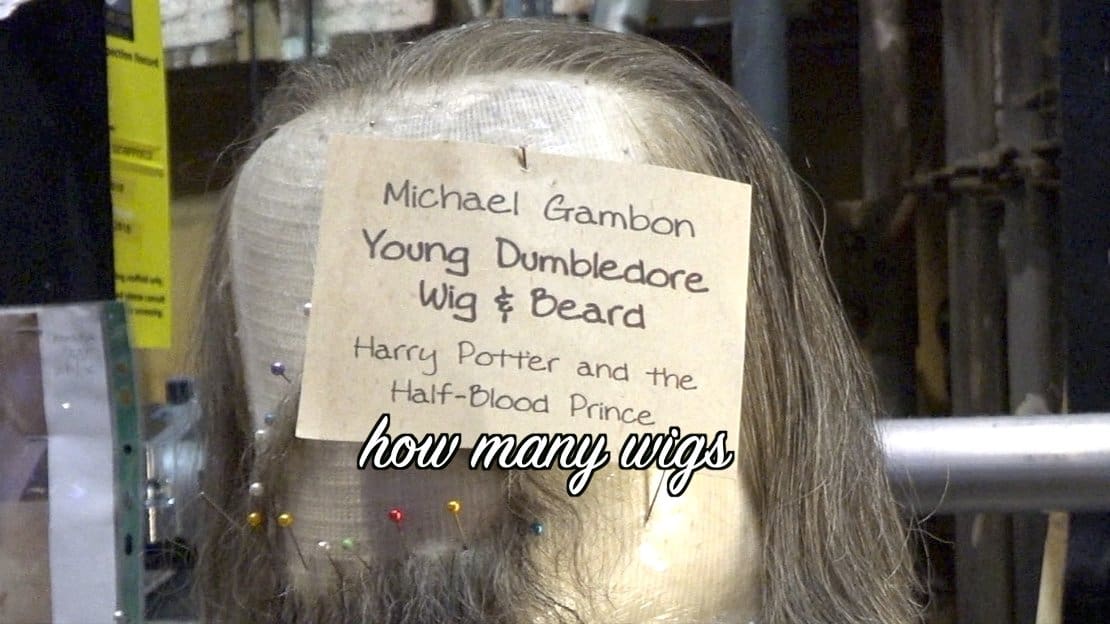 Michael Gambon
Young Dumbledore
Wig & Beard
Harry Potter and the
Half-Blood Prince
how many wigs